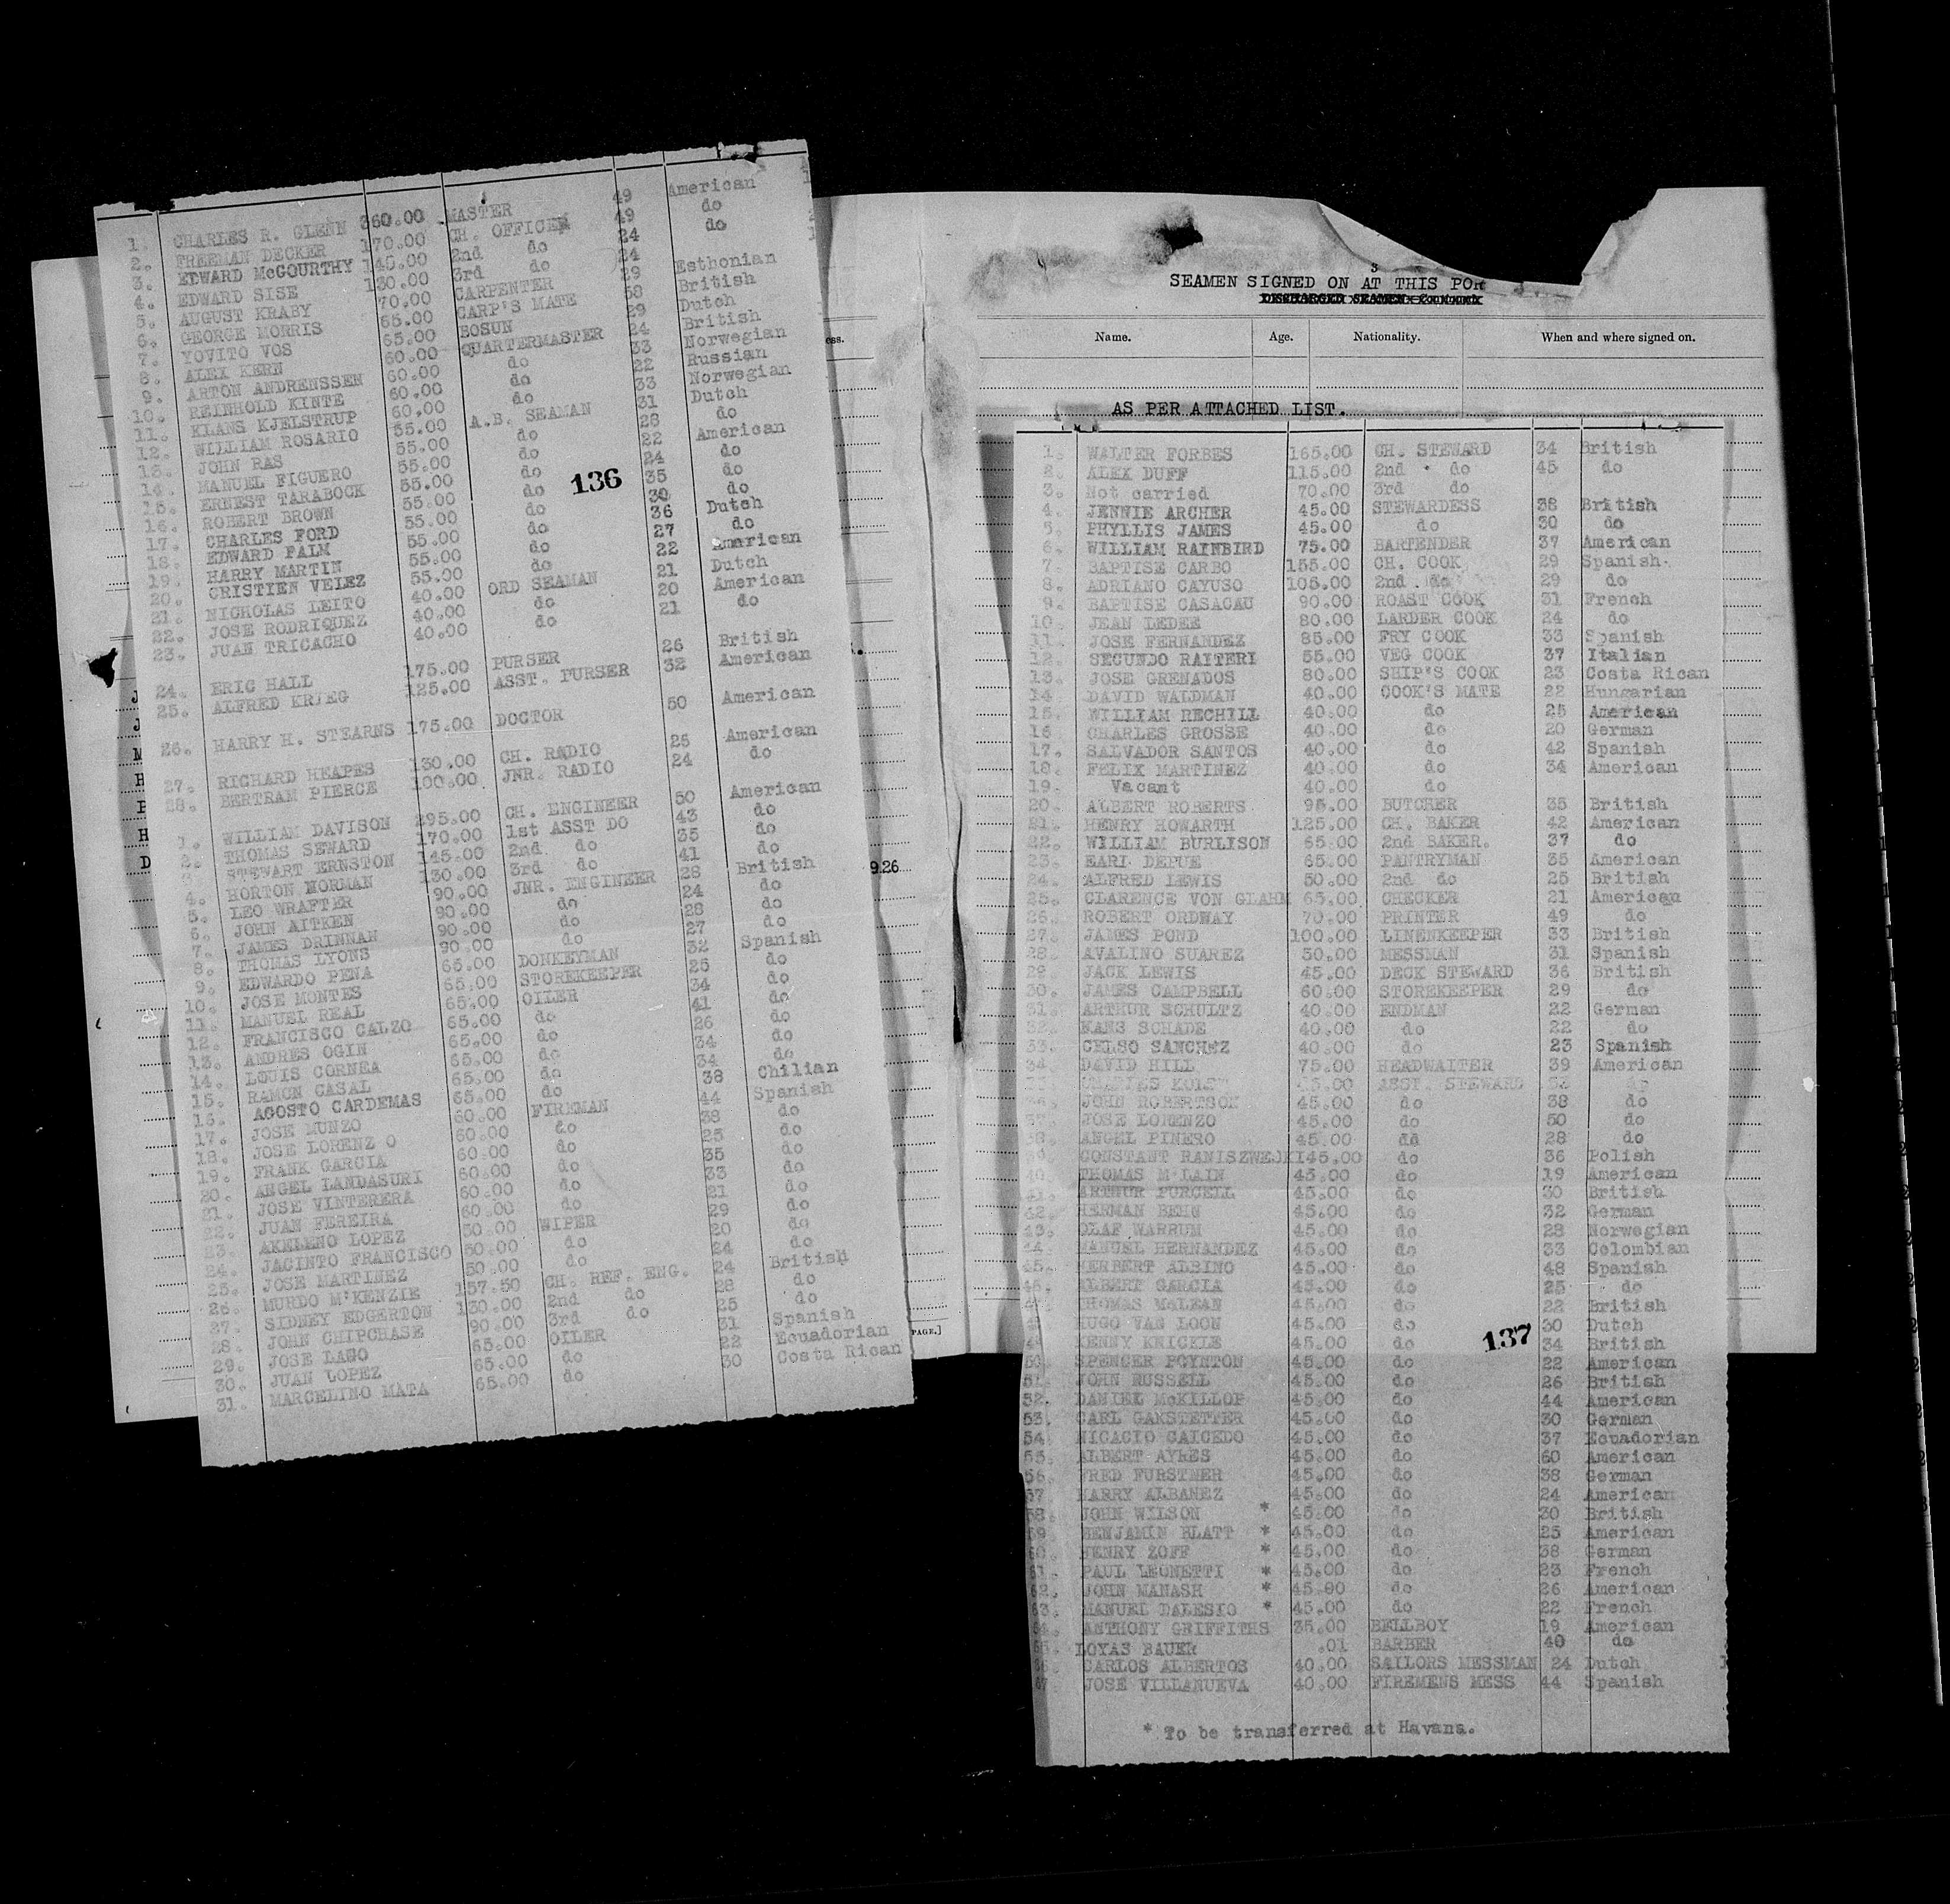 1. CHARLES R. GLENN 360.00 MASTER 49 American
2. FREEMAN DECKER 170.00 CH. OFFICER 49 do
3. EDWARD McGOURTHY 145.00 2nd do 24 do
4. EDWARD SISE 130.00 3rd do 24
5. AUGUST KRABY 70.00 CARPENTER 29 Esthonian
6. GEORGE MORRIS 65.00 CARP'S MATE 58 British
7. YOVITO VOS 65.00 BOSUN 29 Dutch
8. ALEX KERN 60.00 QUARTERMASTER 24 British
9. ARTON ANDRENSSEN 60.00 do 33 Norwegian
10. REINHOLD KINTE 60.00 do 22 Russian
11. KLANS KJELSTRUP 60.00 do 33 Norwegian
12. WILLIAM ROSARIO 55.00 A.B. SEAMAN 31 Dutch
13. JOHN RAS 55.00 do 28 do
14. MANUEL FIGUERO 55.00 do 22 American
15. ERNEST TARABOCK 55.00 do 24 do
16. ROBERT BROWN 55.00 do 35 do
17. CHARLES FORD 55.00 do 30 do
18. EDWARD PALM 55.00 do 36 Dutch
19. HARRY MARTIN 55.00 do 27 do
20. CRISTIEN VELEZ 55.00 do 22 American
21. NICHOLAS LEITO 40.00 ORD SEAMAN 21 Dutch
22. JOSE RODRIQUEZ 40.00 do 20 American
23. JUAN TRICACHO 40.00 do 21 do
136
24. ERIC HALL 175.00 PURSER 26 British
25. ALFRED KRIEG 125.00 ASST. PURSER 32 American
26. HARRY H. STEARNS 175.00 DOCTOR 50 American
27. RICHARD HEAPES 130.00 CH. RADIO 25 American
28. BERTRAM PIERCE 100.00 JNR. RADIO 24 do
1. WILLIAM DAVISON 295.00 CH. ENGINEER 50 American
2. THOMAS SEWARD 170.00 1st ASST DO 43 do
3. STEWART ERNSTON 145.00 2nd do 35 do
4. HORTON NORMAN 130.00 3rd do 41 do
5. LEO WRAFTER 90.00 JNR. ENGINEER 28 British
6. JOHN AITKEN 90.00 do 24 do
7. JAMES DRINNAN 90.00 do 28 do
8. THOMAS LYONS 90.00 do 27 do
9. EDWARDO PENA 65.00 DONKEYMAN 32 Spanish
10. JOSE MONTES 65.00 STOREKEEPER 25 do
11. MANUEL REAL 65.00 OILER 34 do
12. FRANCISCO CALZO 65.00 do 41 do
13. ANDRES OGIN 65.00 do 26 do
14. LOUIS CORNEA 65.00 do 34 do
15. RAMON CASAL 65.00 do 34 do
16. AGOSTO CARDEMAS 65.00 do 38 Chilian
17. JOSE MUNZO 60.00 FIREMAN 44 Spanish
18. JOSE LORENZ O 60.00 do 38 do
19. FRANK GARCIA 60.00 do 25 do
20. ANGEL LANDASURI 60.00 do 35 do
21. JOSE VINTERERA 60.00 do 33 do
22. JUAN FEREIRA 60.00 do 21 do
23. AKELENO LOPEZ 50.00 WIPER 29 do
24. JACINTO FRANCISCO 50.00 do 20 do
25. JOSE MARTINEZ 50.00 do 24 do
26. MURDO M'KENZIE 157.50 CH. REF. ENG. 24 British
27. SIDNEY EDGERTON 130.00 2nd do 28 do
28. JOHN CHIPCHASE 90.00 3rd do 25 do
29. JOSE LAGO 65.00 OILER 31 Spanish
30. JUAN LOPEZ 65.00 do 22 Ecuadorian
31. MARCELINO MATA 65.00 do 30 Costa Rican
926
PAGE.]
3
SEAMEN SIGNED ON AT THIS POR
DISCHARGED SEAMEN
Name. Age. Nationality. When and where signed on.
AS PER ATTACHED LIST.
1. WALTER FORBES 165.00 CH. STEWARD 34 British
2. ALEX DUFF 115.00 2nd do 45 do
3. Not carried 70.00 3rd do
4. JENNIE ARCHER 45.00 STEWARDESS 38 British
5. PHYLLIS JAMES 45.00 do 30 do
6. WILLIAM RAINBIRD 75.00 BARTENDER 37 American
7. BAPTISE CARBO 155.00 CH. COOK 29 Spanish.
8. ADRIANO CAYUSO 105.00 2nd do 29 do
9. BAPTISE CASACAU 90.00 ROAST COOK 31 French
10. JEAN LEDEE 80.00 LARDER COOK 24 do
11. JOSE FERNANDEZ 85.00 FRY COOK 33 Spanish
12. SECUNDO RAITERI 55.00 VEG COOK 37 Italian
13. JOSE GRENADOS 80.00 SHIP'S COOK 23 Costa Rican
14. DAVID WALDMAN 40.00 COOK'S MATE 22 Hungarian
15. WILLIAM RECHILL 40.00 do 25 American
16. CHARLES GROSSE 40.00 do 20 German
17. SALVADOR SANTOS 40.00 do 42 Spanish
18. FELIX MARTINEZ 40.00 do 34 American
19. Vacant 40.00 do
20. ALBERT ROBERTS 95.00 BUTCHER 35 British
21. HENRY HOWARTH 125.00 CH. BAKER 42 American
22. WILLIAM BURLISON 65.00 2nd BAKER. 37 do
23. EARL DEPUE 65.00 PANTRYMAN 35 American
24. ALFRED LEWIS 50.00 2nd do 25 British
25. CLARENCE VON GLAHN 65.00 CHECKER 21 American
26. ROBERT ORDWAY 70.00 PRINTER 49 do
27. JAMES POND 100.00 LINENKEEPER 33 British
28. AVALINO SUAREZ 50.00 MESSMAN 31 Spanish
29. JACK LEWIS 45.00 DECK STEWARD 36 British
30. JAMES CAMPBELL 60.00 STOREKEEPER 29 do
31. ARTHUR SCHULTZ 40.00 ENDMAN 22 German
32. HANS SCHADE 40.00 do 22 do
33. CELSO SANCHEZ 40.00 do 23 Spanish
34. DAVID HILL 75.00 HEADWAITER 39 American
35. CHARLES ASST. STEWARD do
36. JOHN ROBERTSON 45.00 do 38 do
37. JOSE LORENZO 45.00 do 50 do
38. ANGEL PINERO 45.00 do 28 do
39. CONSTANT RANISZWEJKI 45.00 do 36 Polish
40. THOMAS M'LAIN 45.00 do 19 American
41. ARTHUR PURCELL 45.00 do 30 British
42. HERMAN BEHN 45.00 do 32 German
43. OLAF WARRUM 45.00 do 28 Norwegian
44. MANUEL HERNANDEZ 45.00 do 33 Colombian
45. HERBERT ALBINO 45.00 do 48 Spanish
46. ALBERT GARCIA 45.00 do 25 do
47. THOMAS McLEAN 45.00 do 22 British
48. HUGO VAN LOON 45.00 do 30 Dutch
49. KENNY KNICKLE 45.00 do 34 British
137
50. SPENCER POYNTON 45.00 do 22 American
51. JOHN RUSSELL 45.00 do 26 British
52. DANIEL McKILLOP 45.00 do 44 American
53. CARL GANSTETTER 45.00 do 30 German
54. NICACIO CAICEDO 45.00 do 37 Ecuadorian
55. ALBERT AYRES 45.00 do 60 American
56. FRED FURSTNER 45.00 do 38 German
57. HARRY ALBANEZ 45.00 do 24 American
58. JOHN WILSON * 45.00 do 30 British
59. BENJAMIN BLATT * 45.00 do 25 American
60. HENRY ZOFF * 45.00 do 38 German
61. PAUL LEONETTI * 45.00 do 23 French
62. JOHN MANASH * 45.00 do 26 American
63. MANUEL DALESIO * 45.00 do 22 French
64. ANTHONY GRIFFITHS 35.00 BELLBOY 19 American
65. LOYAS BAUER .01 BARBER 40 do
66. CARLOS ALBERTOS 40.00 SAILORS MESSMAN 24 Dutch
67. JOSE VILLANUEVA 40.00 FIREMENS MESS 44 Spanish
* To be transferred at Havana.